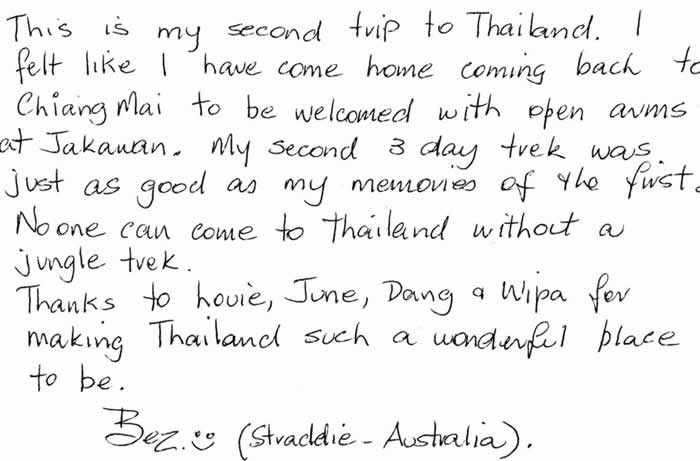 This is my second trip to Thailand. I
felt like I have come home coming back to
Chiang Mai to be welcomed with open arms
at Jakawan. My second 3 day trek was
just as good as my memories of the first.
No one can come to Thailand without a
jungle trek.
Thanks to Louie, June, Dang & Wipa for
making Thailand such a wonderful place
to be.
Bez. (Straddie - Australia).